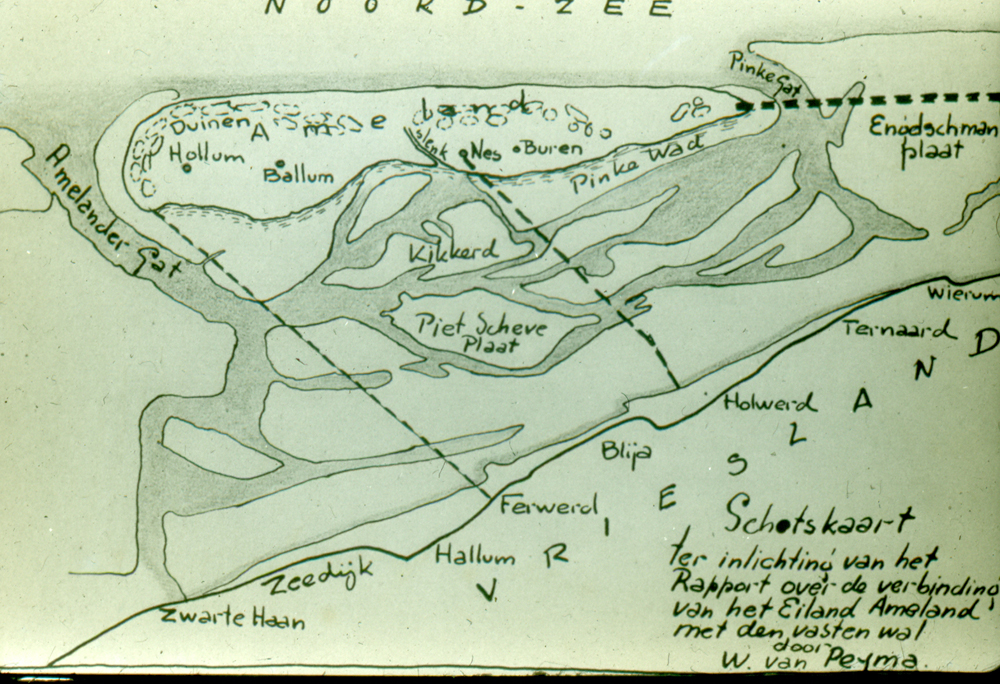 NOORD-ZEE
Pinke Gat
Duinen
Ameland
Hollum
Ballum
slenk
Nes
Buren
Pinke Wad
Enodschman
plaat
Amelander Gat
Kikkerd
Piet Scheve
Plaat
Wierum
Ternaard
Holwerd
Blija
Ferwerd
Hallum
Zeedijk
Zwarte Haan
VRIESLAND
Schetskaart
ter inlichting van het
Rapport over de verbinding
van het Eiland Ameland
met den vasten wal
door
W. van Peyma.